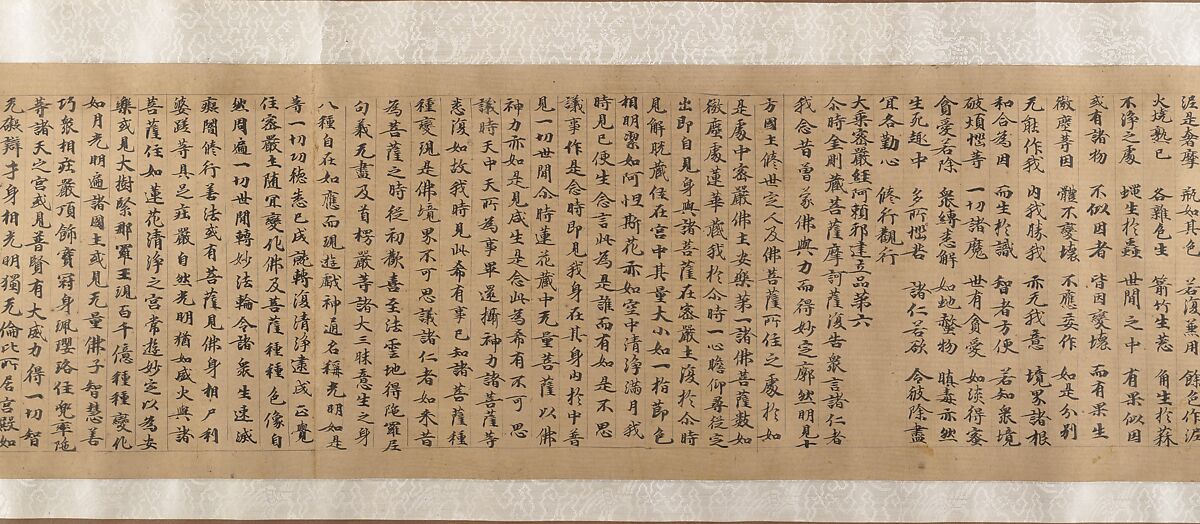 泥是奢摩 瓶如其色 若復兼用 餘色作泥
火燒熟已 各雜色生 箭竹生葱 角生於蒜
不淨之處 蠅生於蟲 世間之中 有果似因
或有諸物 不似因者 皆因變壞 而有果生
微塵等因 體不變壞 不應妄作 如是分別
无能作我 内我勝我 亦无我意 境界諸根
和合為因 而生於識 智者方便 若知衆境
破煩惱等 一切諸魔 世有貪愛 如淡得蜜
貪愛若除 衆縛悉解 如虵螫物 瞋毒亦然
生死趣中 多所惱害 諸仁若欲 令彼除盡
宜各勤心 修行觀行
大乘密嚴經阿賴耶建立品第六
尒時金剛藏菩薩摩訶薩復告衆言諸仁者
我念昔曾蒙佛與力而得妙定廓然明見十
方國土修世定人及佛菩薩所住之處於如
是處中密嚴佛土安樂第一諸佛菩薩數如
微塵處蓮華藏我於尒時一心瞻仰尋從定
出即自見身與諸菩薩在密嚴土復於尒時
見解脫藏住在宮中其量大小如一指節色
相明潔如阿怛斯花亦如空中清淨滿月我
時見已便生念言此為是誰而有如是不思
議事作是念時即見我身在其身内於中普
見一切世間尒時蓮花藏中无量菩薩以佛
神力亦如是見咸生是念此為希有不可思
議時天中天所為事畢還攝神力諸菩薩等
悉復如故我時見此希有事已知諸菩薩種
種變現是佛境界不可思議諸仁者如来昔
為菩薩之時從初歡喜至法雲地得陁羅尼
句義无盡及首楞嚴等諸大三昧意生之身
八種自在如應而現遊戲神通名稱光明如是
等一切功德悉已成就轉復清淨遂成正覺
住密嚴土隨宜變化佛及菩薩種種色像自
然周遍一切世間轉妙法輪令諸衆生速滅
癡闇修行善法或有菩薩見佛身相尸利
婆蹉等具足莊嚴自然光明猶如盛火與諸
菩薩住如蓮花清淨之宮常遊妙定以為安
樂或見大樹緊那羅王現百千億種種變化
如月光明遍諸國土或見无量佛子智慧善
巧衆相莊嚴頂飾寶冠身珮瓔珞住兜率陁
等諸天之宮或見普賢有大威力得一切智
无礙辯才身相光明獨无倫比所居宮殿如